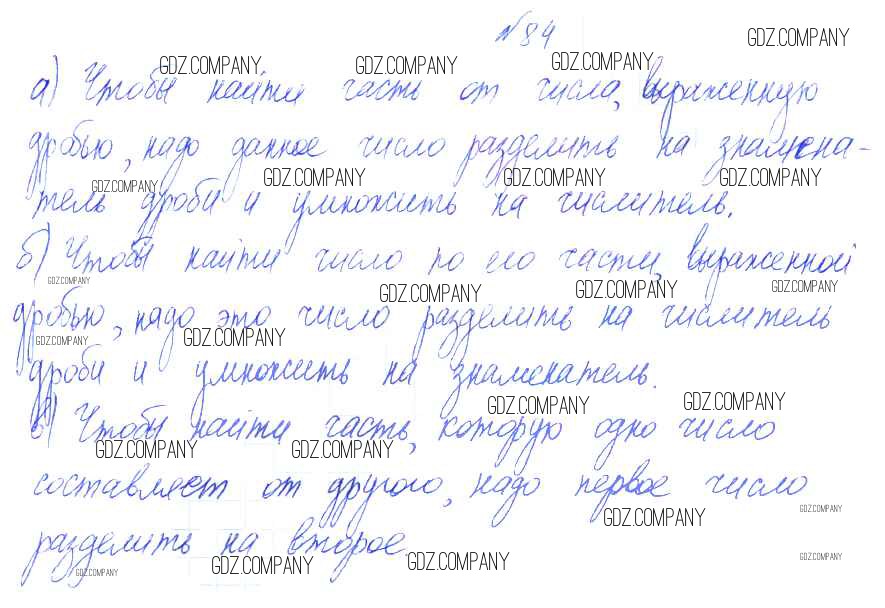 № 84
GDZ.COMPANY
GDZ.COMPANY GDZ.COMPANY GDZ.COMPANY
а) Чтобы найти часть от числа, выраженную
дробью, надо данное число разделить на знамена-
GDZ.COMPANY GDZ.COMPANY GDZ.COMPANY GDZ.COMPANY
тель дроби и умножить на числитель.
б) Чтобы найти число по его части, выраженной
GDZ.COMPANY GDZ.COMPANY GDZ.COMPANY GDZ.COMPANY
дробью, надо это число разделить на числитель
GDZ.COMPANY GDZ.COMPANY
дроби и умножить на знаменатель.
GDZ.COMPANY GDZ.COMPANY
в) Чтобы найти часть, которую одно число
GDZ.COMPANY GDZ.COMPANY
составляет от другого, надо первое число
GDZ.COMPANY GDZ.COMPANY
разделить на второе.
GDZ.COMPANY GDZ.COMPANY GDZ.COMPANY GDZ.COMPANY